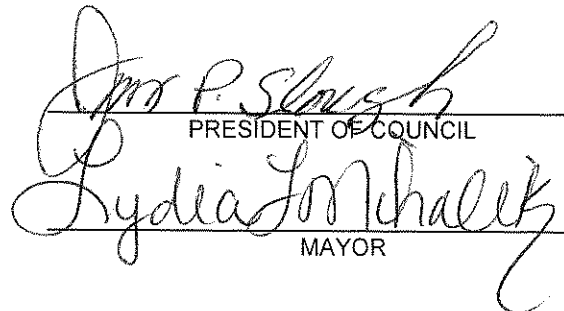 P. Slough
PRESIDENT OF COUNCIL
Lydia L. Mihalik
MAYOR